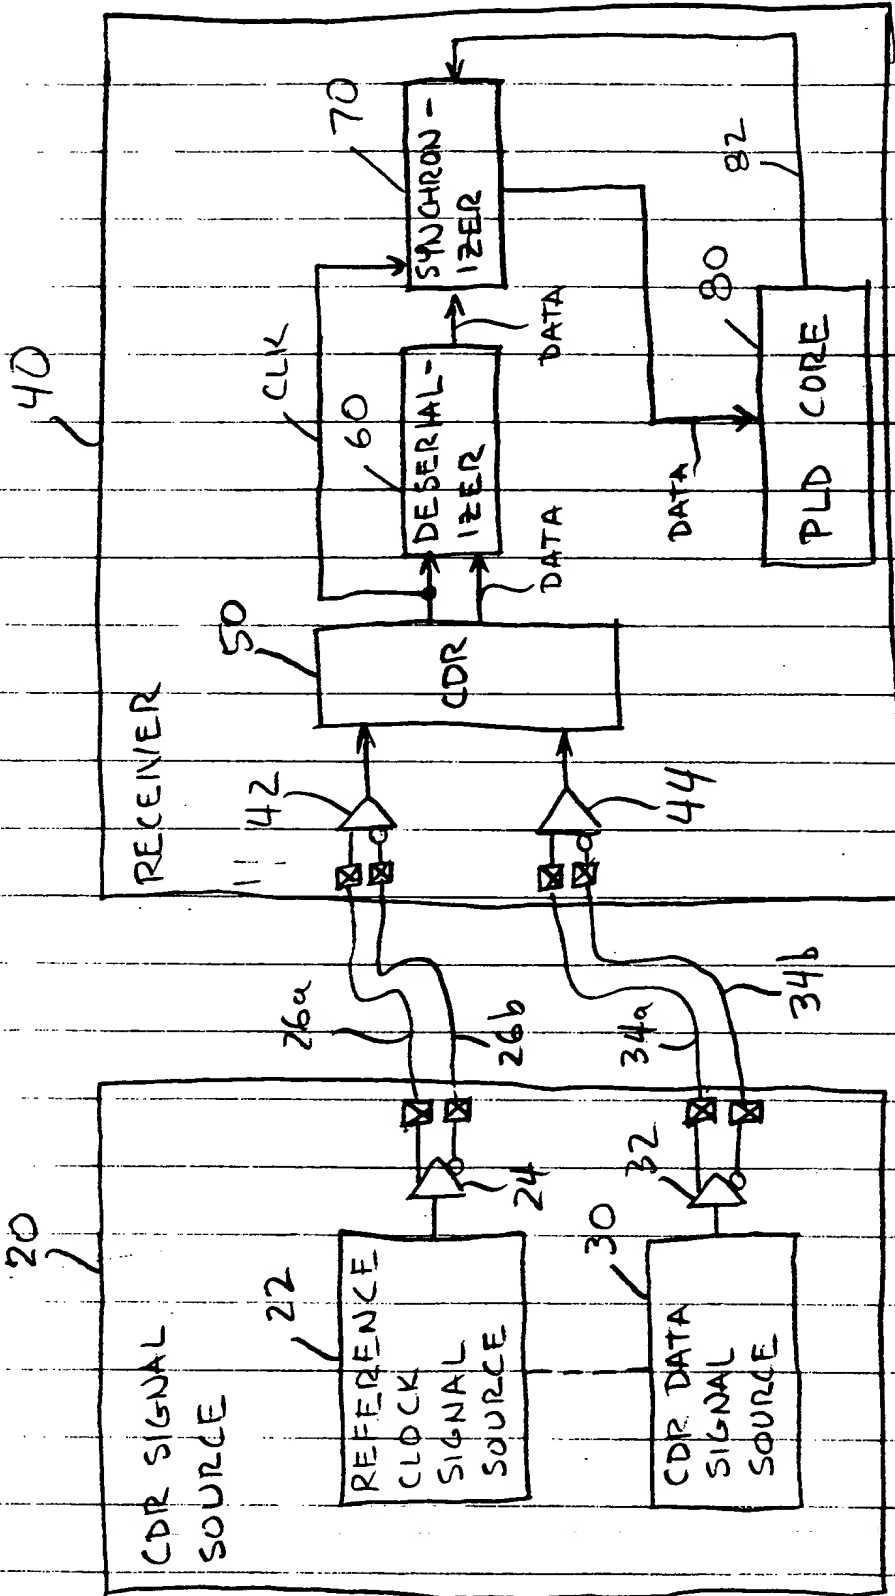 20
CDR SIGNAL
SOURCE
22
REFERENCE
CLOCK
SIGNAL
SOURCE
24
26a
26b
30
CDR DATA
SIGNAL
SOURCE
32
34a
34b
40
RECEIVER
42
44
50
CDR
CLK
DATA
60
DESERIAL-
IZER
DATA
70
SYNCHRON-
IZER
DATA
80
PLD CORE
82